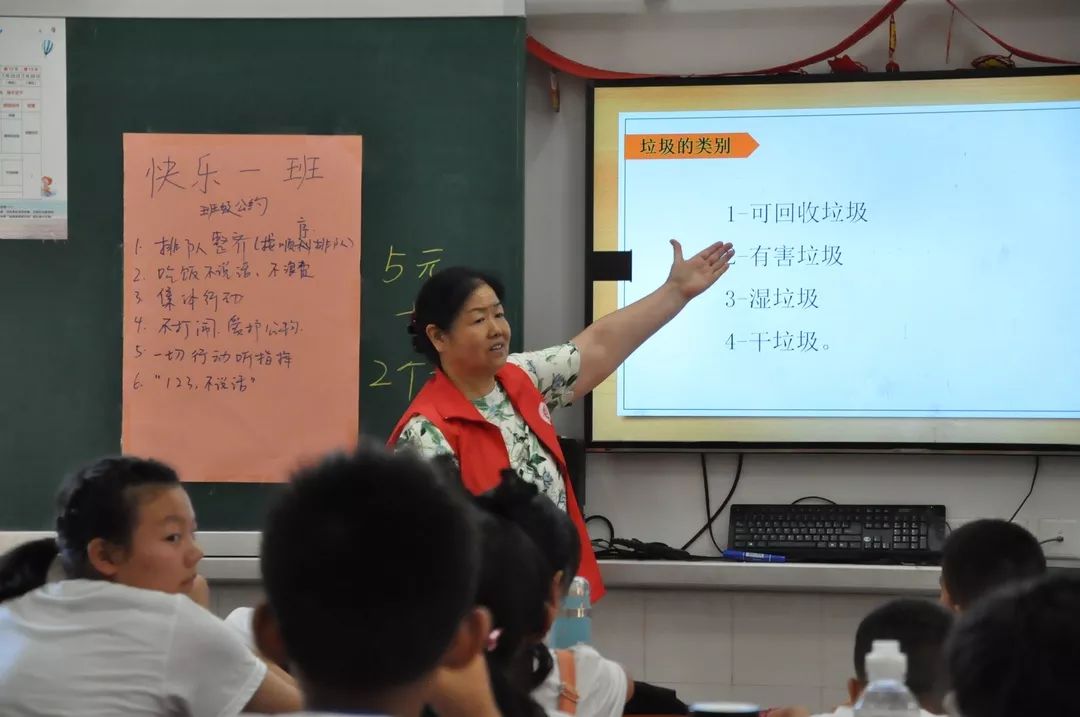 快乐一班
班级公约
1. 排队整齐(按顺序排队)
2. 吃饭不说话、不浪费
3 集体行动
4. 不打闹.爱护公物.
5. 一切行动听指挥
6. "123,不说话"
5元
2个
垃圾的类别
1-可回收垃圾
2-有害垃圾
3-湿垃圾
4-干垃圾。